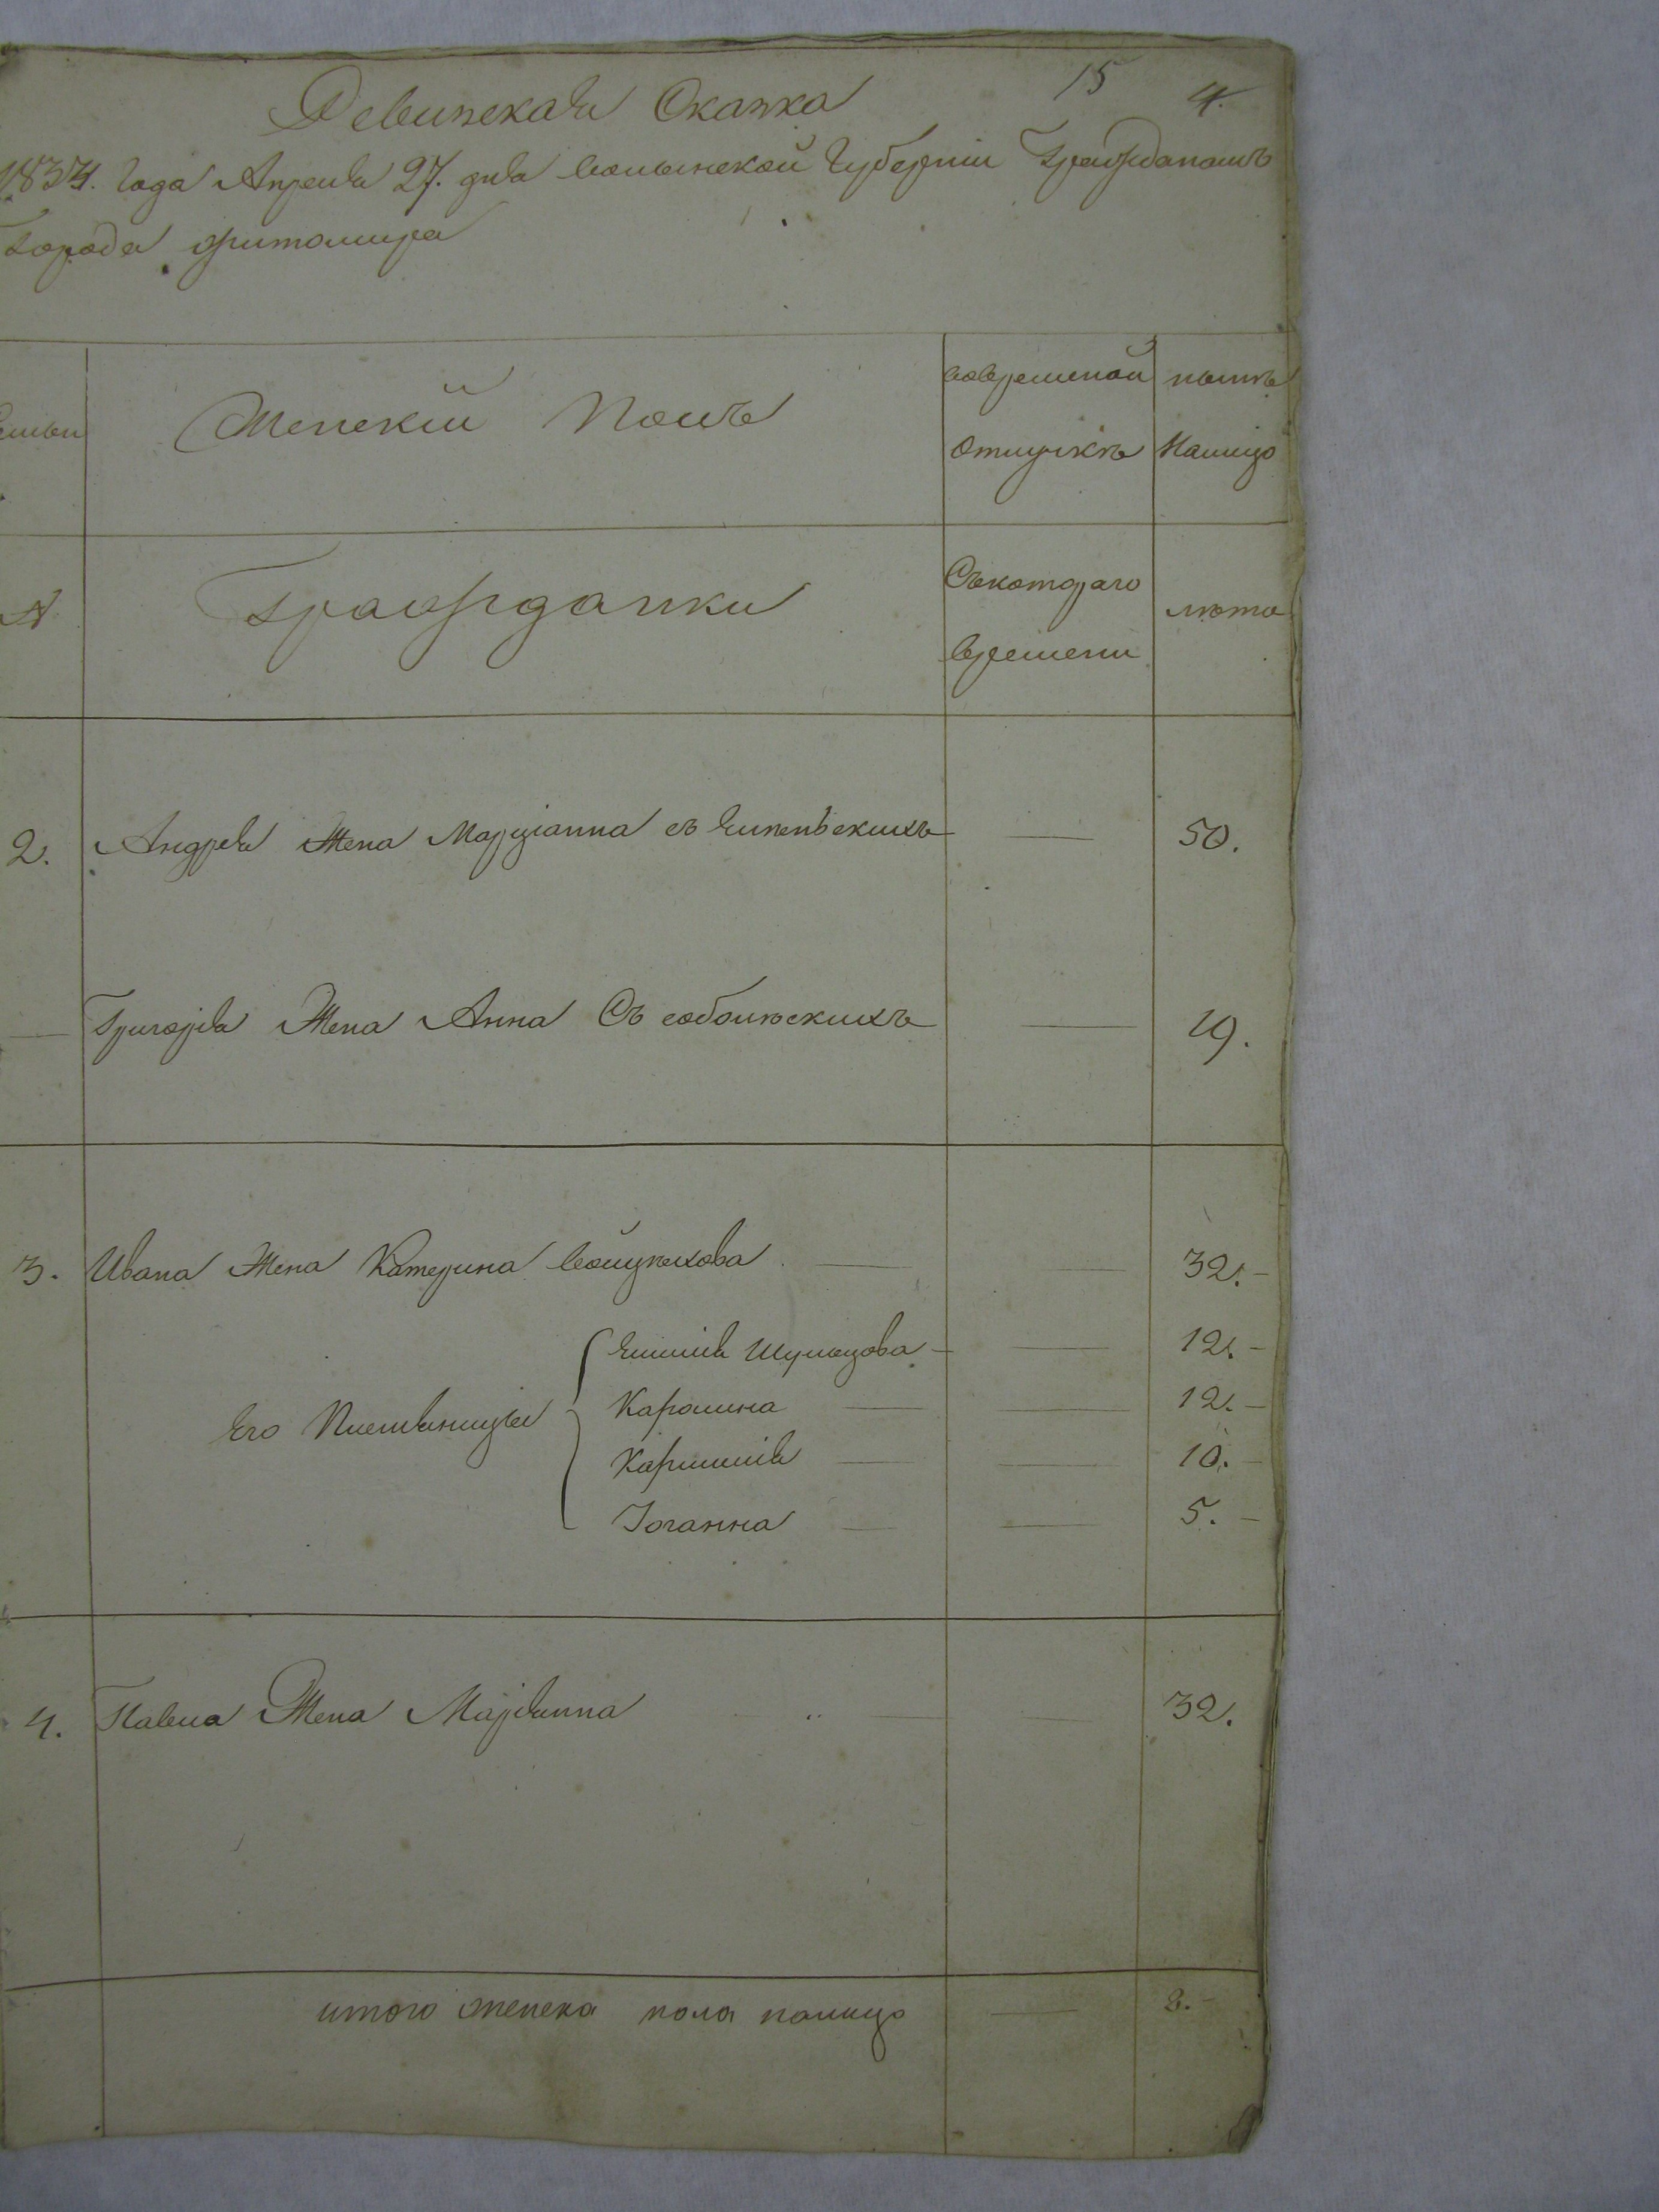 15 4.
Ревизская Сказка
1834. Года Апреля 27. дня волынской Губерніи Гражданамъ
Города житомира
Женскій Полъ
вовременной отлучкѣ
нынѣ Налицо
№
Гражданки
Съкотораго времени
лѣта
2. Андрея Жена Марціанна съ — 50.
— Григорія Жена Анна Съ соболѣскихъ — 19.
3. Ивана Жена Катерина войцѣхова — — 32. —
Емилія Шульцова — — 12. —
Его Племяницы Каролина — — 12. —
— — 10. —
Іоганна — — 5. —
4. Павла Жена Маріянна — — 32.
итого женска пола налицо — 8. —